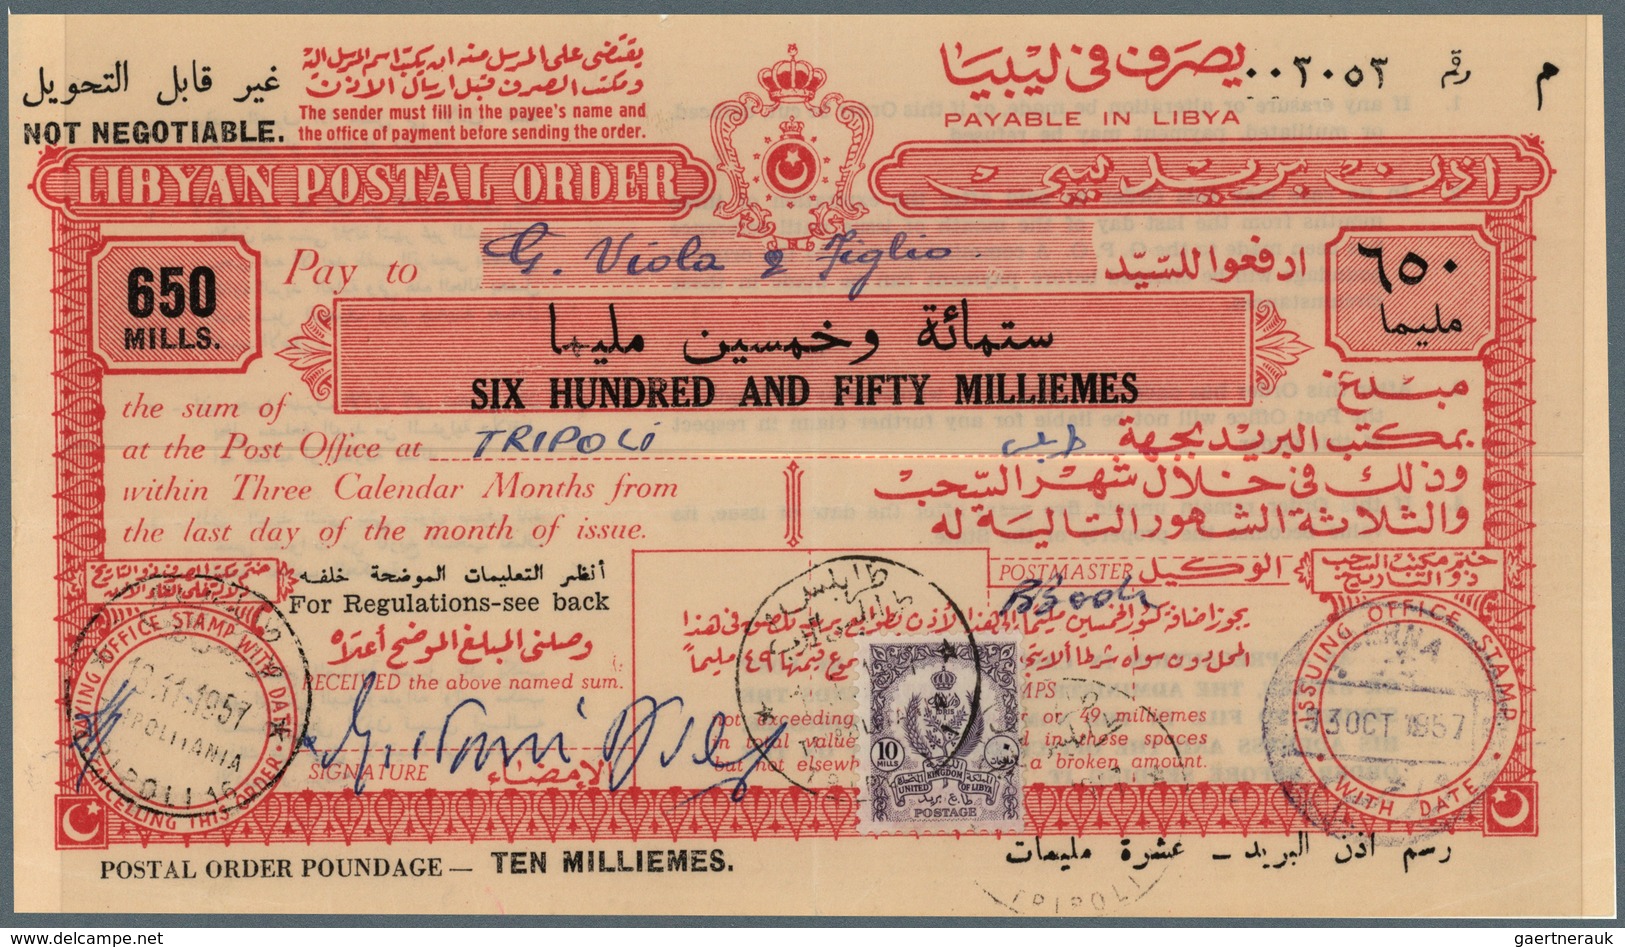 يقتضى على المرسل منه ان يكتب اسم المرسل اليه
ومكتب الصرف قبل ارسال الاذن
The sender must fill in the payee's name and
the office of payment before sending the order.
غير قابل التحويل
NOT NEGOTIABLE.
يصرف فى ليبيا
PAYABLE IN LIBYA
م رقم ٠٠٣٠٥٣
LIBYAN POSTAL ORDER
اذن بريد ليبي
650
MILLS.
Pay to G. Viola & Figlio. ادفعوا للسيد
٦٥٠
مليما
ستمائة وخمسين مليما
SIX HUNDRED AND FIFTY MILLIEMES
the sum of
مبلغ
at the Post Office at TRIPOLI
بمكتب البريد بجهة
within Three Calendar Months from
وذلك فى خلال شهر السحب
the last day of the month of issue.
والثلاثة الشهور التالية له
أنظر التعليمات الموضحة خلفه
For Regulations-see back
POSTMASTER الوكيل
ختم مكتب السحب
ذو التاريخ
وصلنى المبلغ الموضح أعلاه
RECEIVED the above named sum.
SIGNATURE الإمضاء
not exceeding or 49 milliemes
in total value in these spaces
but not elsewhere a broken amount.
PAYING OFFICE STAMP WITH DATE
CANCELLING THIS ORDER
13.11.1957
TRIPOLITANIA
TRIPOLI
طرابلس
ISSUING OFFICE STAMP
WITH DATE
13 OCT 1957
IDRIS
10
MILLS
المملكة الليبية المتحدة
UNITED KINGDOM OF LIBYA
POSTAGE
POSTAL ORDER POUNDAGE — TEN MILLIEMES.
رسم اذن البريد - عشرة مليمات
delcampe.net
gaertnerauk